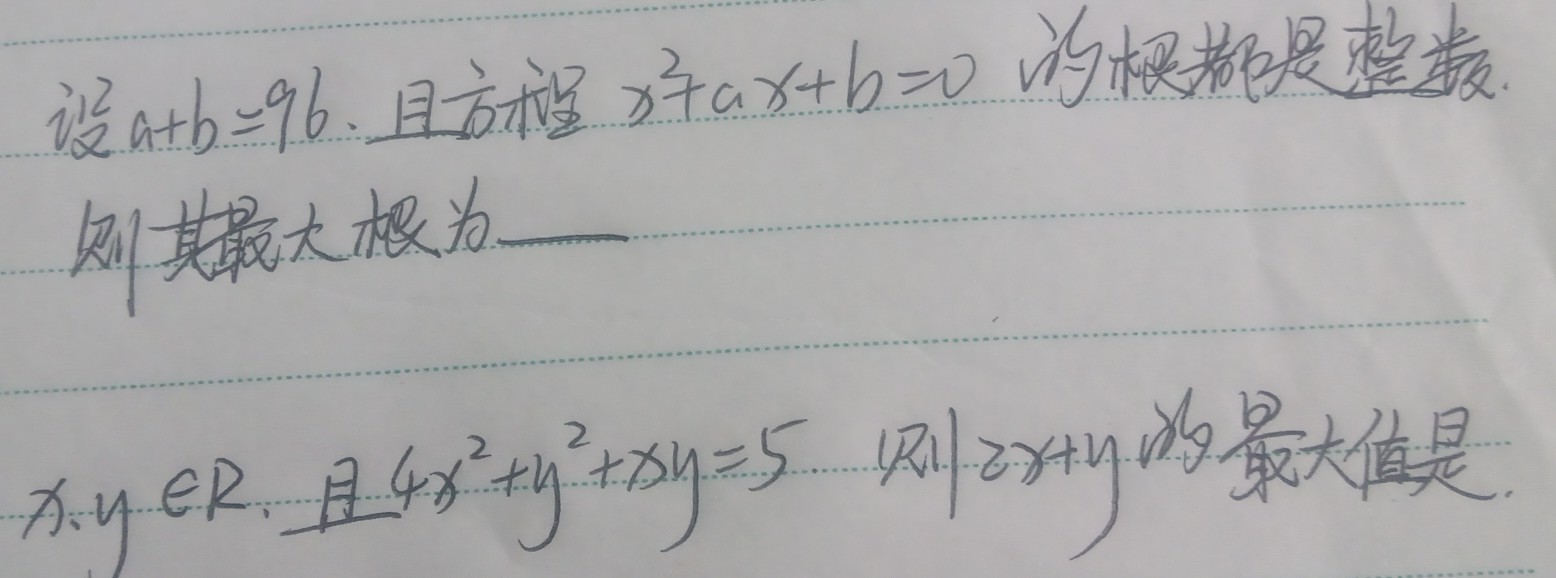 设a+b=96、且方程 x²+ax+b=0 的根都是整数.
则其最大根为——
x、y∈R、且4x²+y²+xy=5. 则2x+y的最大值是.